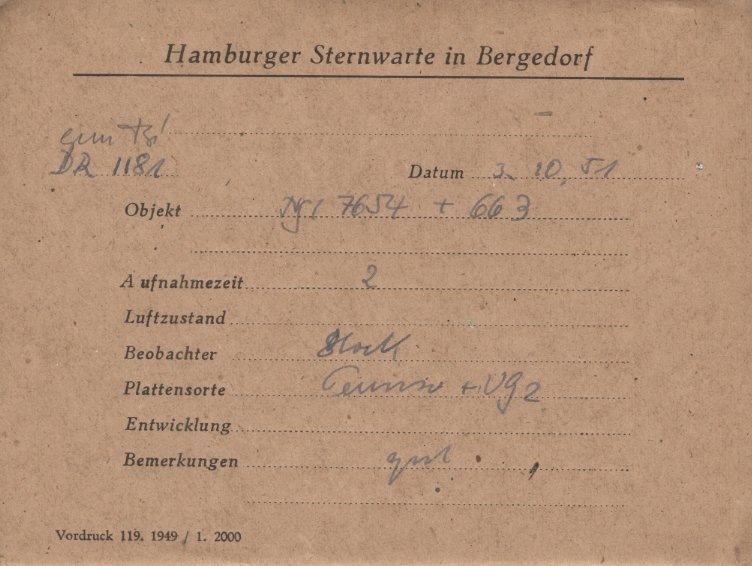 Hamburger Sternwarte in Bergedorf
DR 1181
Datum 3. 10. 51
Objekt Ngc 7654 + 663
Aufnahmezeit 2
Luftzustand
Beobachter
Plattensorte + VG2
Entwicklung
Bemerkungen gut
Vordruck 119. 1949 / 1. 2000